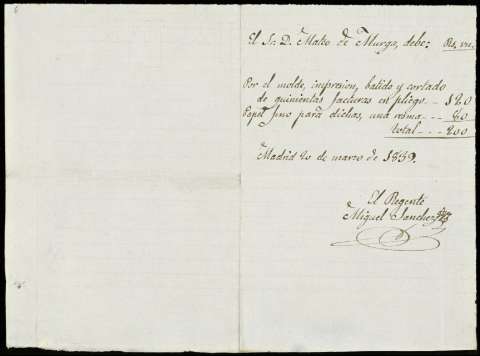 El Sr. D. Mateo de Murga, debe: Rs. vn.
Por el molde, impresion, batido y cortado
de quinientas facturas en pliego. . 120
Papel fino para dichas, una resma. - - 80
Total - - - 200
Madrid 20 de marzo de 1859.
El Regente
Miguel Sanchez